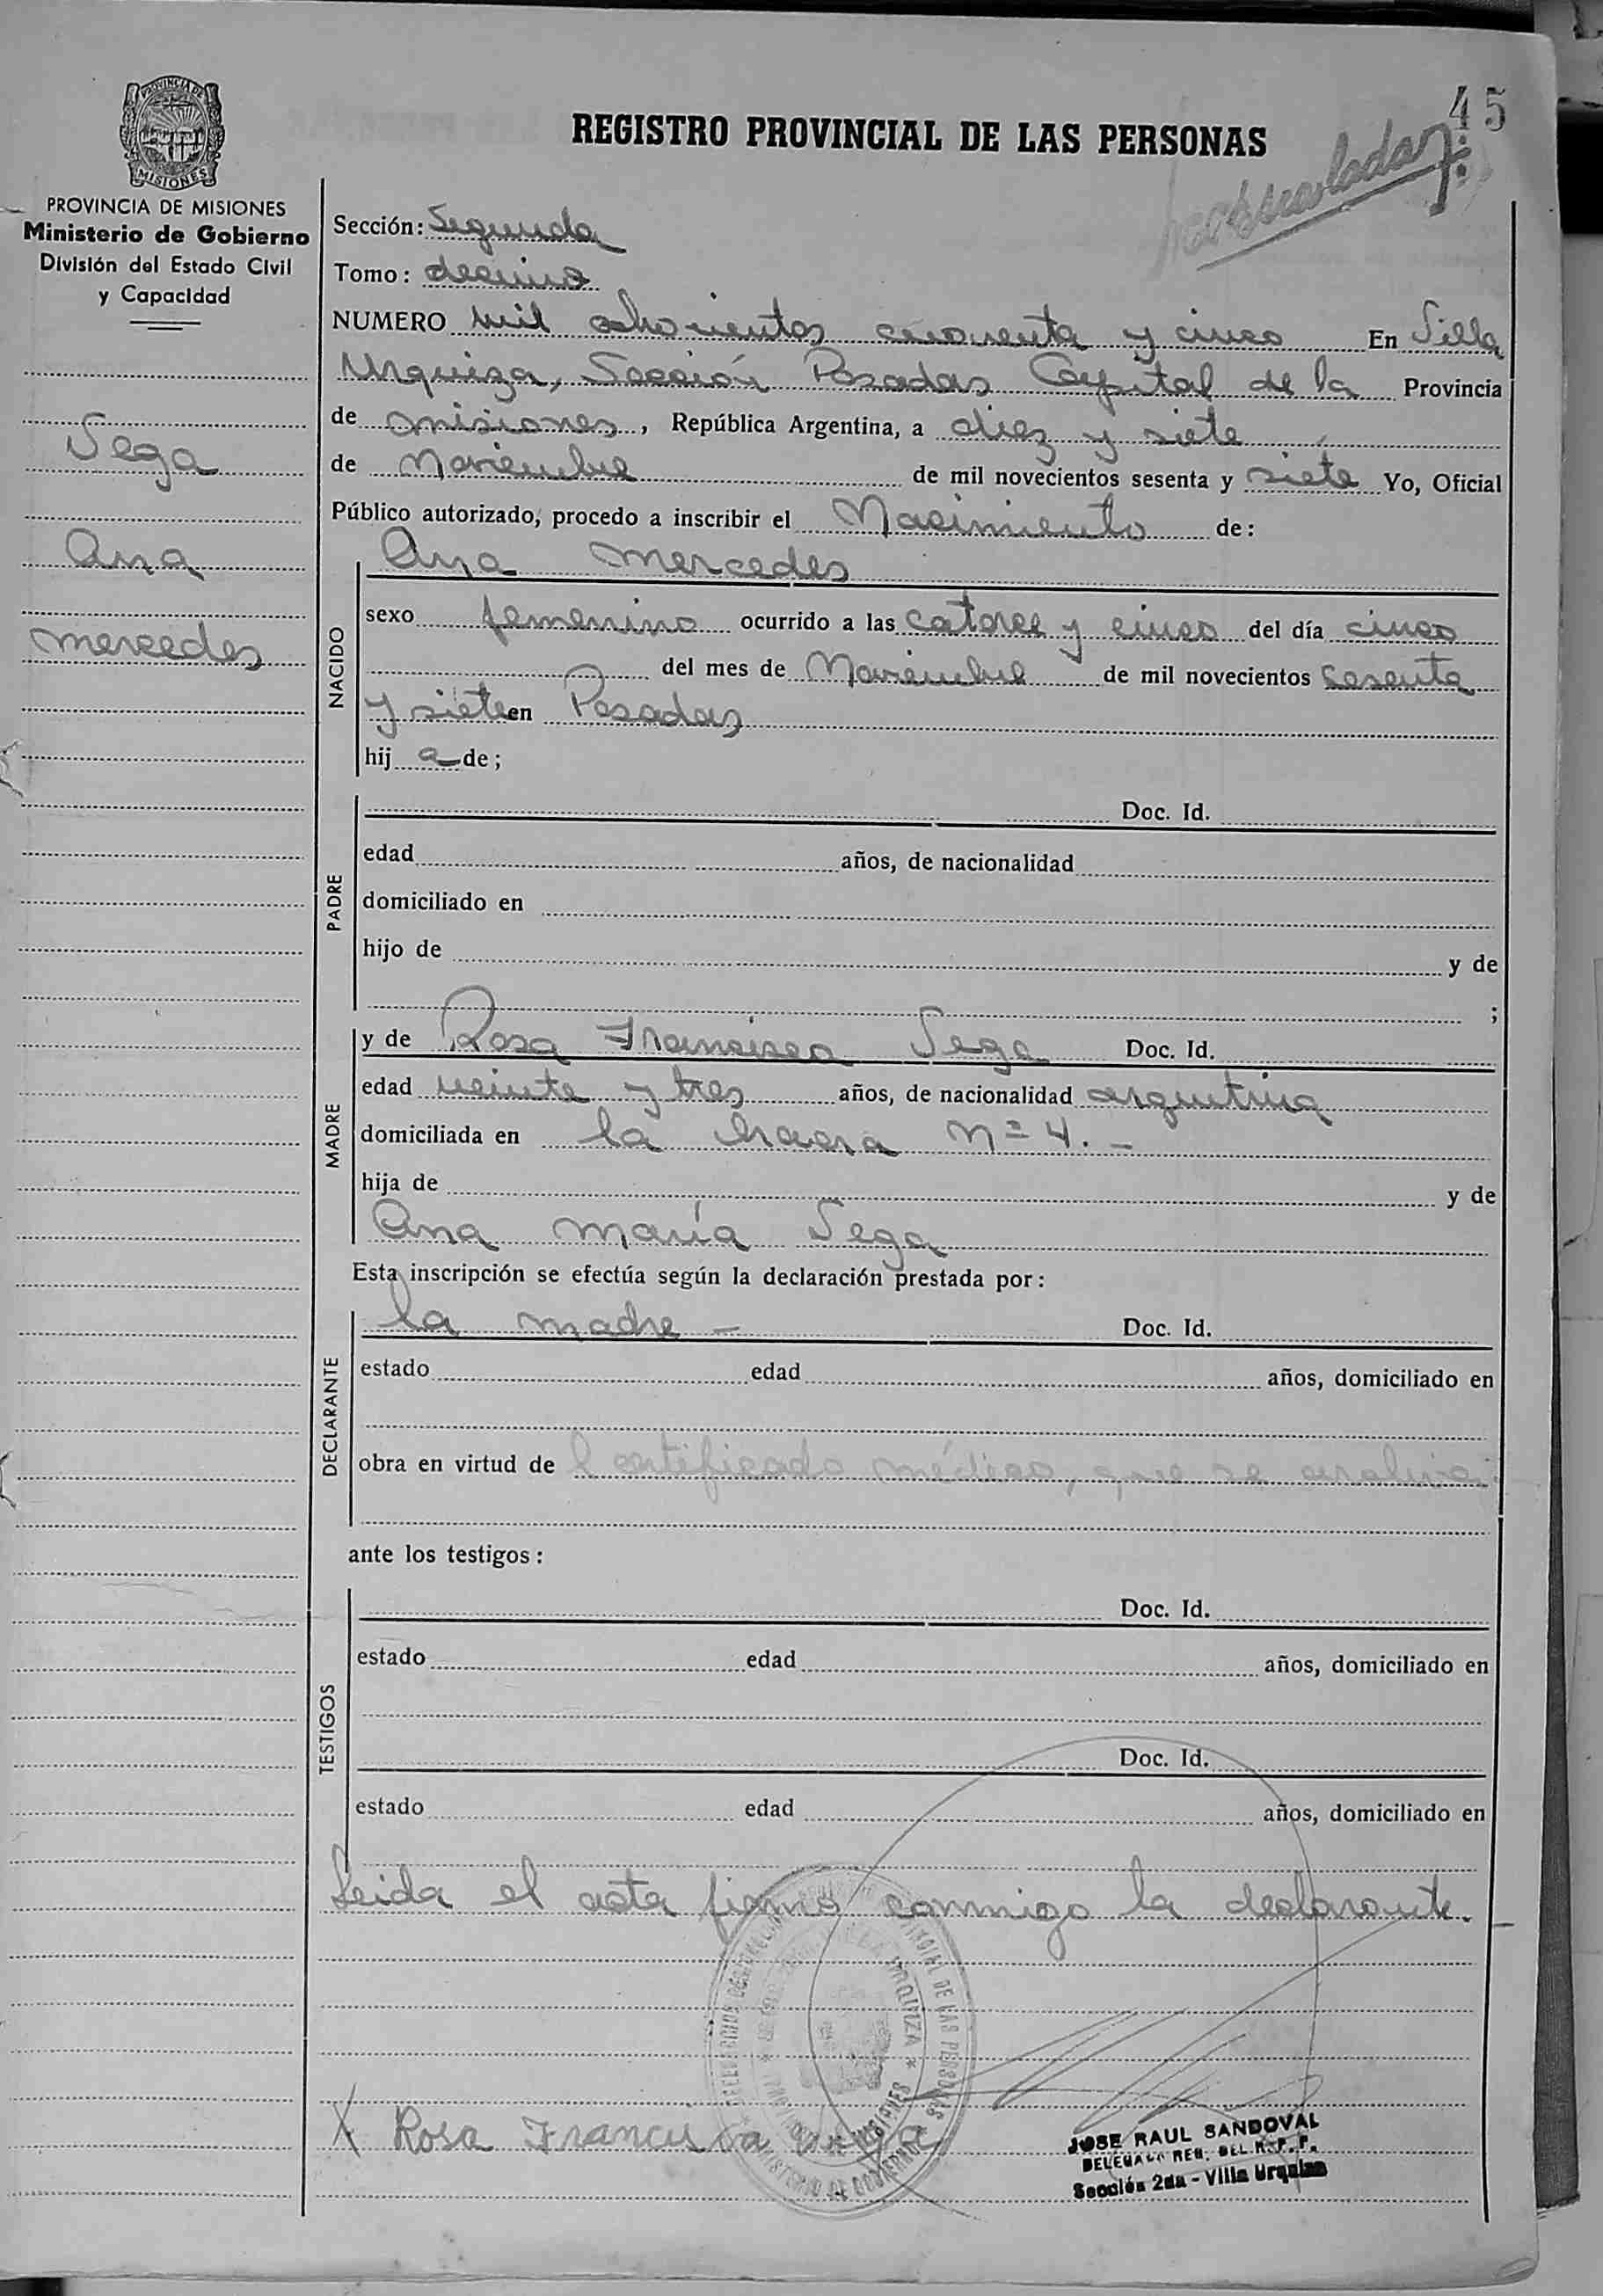 45
REGISTRO PROVINCIAL DE LAS PERSONAS
PROVINCIA DE MISIONES
Ministerio de Gobierno
División del Estado Civil
y Capacidad
Sega
Ana
mercedes
Sección: Segunda
Tomo: decimo
NUMERO mil ochocientos cincuenta y cinco En Villa
Urquiza, Sección Posadas Capital de la Provincia
de misiones, República Argentina, a diez y siete
de Noviembre de mil novecientos sesenta y siete Yo, Oficial
Público autorizado, procedo a inscribir el Nacimiento de:
NACIDO
Ana mercedes
sexo femenino ocurrido a las catorce y cinco del día cinco
del mes de Noviembre de mil novecientos sesenta
y siete en Posadas
hij a de;
PADRE
Doc. Id.
edad años, de nacionalidad
domiciliado en
hijo de y de
;
MADRE
y de Rosa Francisca Sega Doc. Id.
edad veinte y tres años, de nacionalidad argentina
domiciliada en la chacra Nº 4. -
hija de y de
Ana maría Sega
Esta inscripción se efectúa según la declaración prestada por:
DECLARANTE
la madre - Doc. Id.
estado edad años, domiciliado en
obra en virtud de l certificado médico, que se
ante los testigos:
TESTIGOS
Doc. Id.
estado edad años, domiciliado en
Doc. Id.
estado edad años, domiciliado en
Leida el acta firmó conmigo la declarante. -
X Rosa Francisca Sega
JOSE RAUL SANDOVAL
DELEGADO REG. DEL R.P.P.
Sección 2da - Villa Urquiza